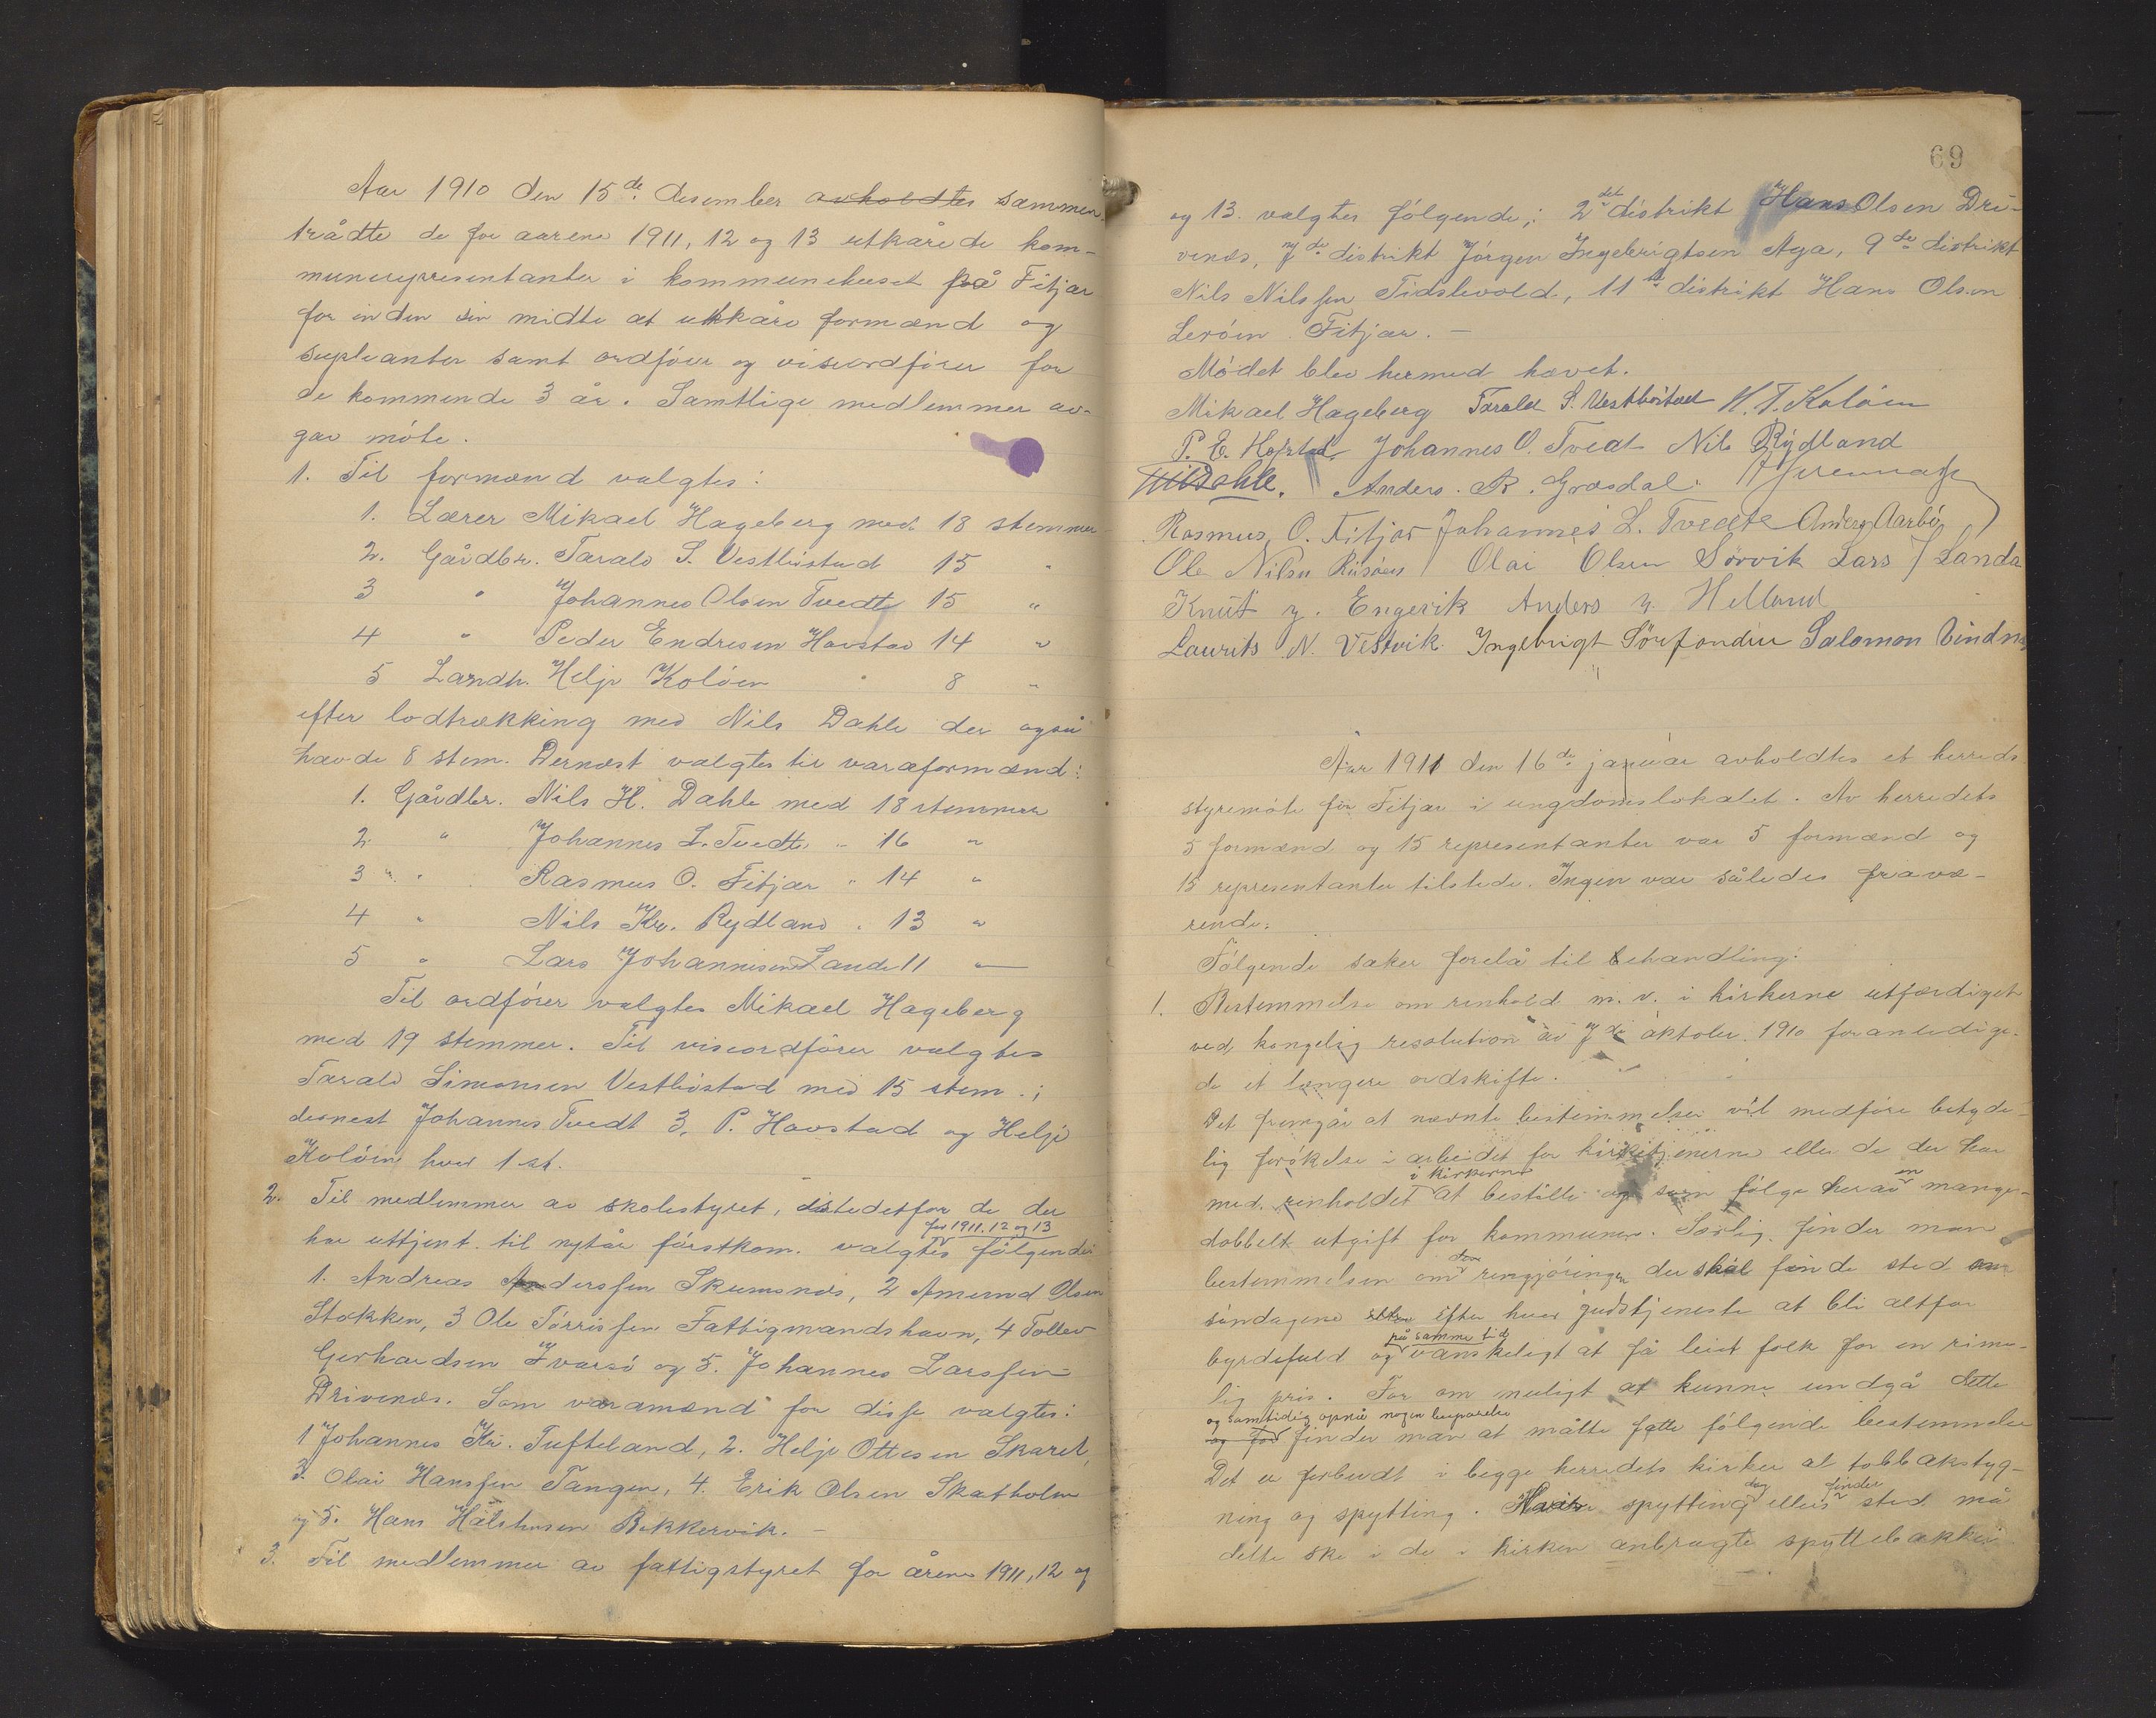 Aar 1910 den 15de desember avholdtes sammen-
trådte de for aarene 1911, 12 og 13 utkårede kom-
munerepresentanter i kommunehuset på Fitjar
for inden sin midte at utkåre formænd og
supleanter samt ordfører og viseordfører for
de kommende 3 år. Samtlige medlemmer av-
gav møte.
1. Til formænd valgtes:
1. Lærer Mikael Hageberg med 18 stemmer
2. Gårdbr. Tarald S. Vestbøstad 15 "
3 " Johannes Olsen Tvedte 15 "
4 " Peder Endresen Havstad 14 "
5 Landh. Helje Koløen 8 "
efter lodtrækking med Nils Dahle der også
havde 8 stem. Dernæst valgtes til varaformænd:
1. Gårdbr. Nils H. Dahle med 18 stemmer
2. " Johannes L. Tvedte " 16 "
3 " Rasmus O. Fitjar " 14 "
4 " Nils Kr. Rydland " 13 "
5 " Lars Johannesen Landa 11 "
Til ordfører valgtes Mikael Hageberg
med 19 stemmer. Til viseordfører valgtes
Tarald Simonsen Vestbøstad med 15 stem.;
dernest Johannes Tvedt 3, P. Havstad og Helje
Koløen hver 1 st.
2. Til medlemmer av skolestyret, istedetfor de der
for 1911, 12 og 13
har uttjent til nytår førstkom. valgtes følgende:
1. Andreas Anderssen Skumsnes, 2 Amund Olsen
Stokken, 3 Ole Tørrissen Fattigmandshavn, 4 Tollev
Gerhardsen Ivarsø og 5. Johannes Larssen
Drivenæs. Som varamænd for disse valgtes:
1 Johannes Kr. Tufteland, 2. Helje Ottesen Skaret,
3. Olai Hanssen Tangen, 4. Erik Olsen Skatholm
og 5. Hans Bekkervik.
3. Til medlemmer av fattigstyret for årene 1911, 12 og
69
og 13. valgtes følgende: 2det distrikt Hans Olsen Dri-
venæs, 7de distrikt Jørgen Ingebrigtsen Aga, 9de distrikt
Nils Nilssen Tidslevold, 11te distrikt Hans Olsen
Lerøen Fitjar. —
Mødet blev hermed hævet.
Mikael Hageberg Tarald S. Vestbøstad H. T. Koløen
P. E. Havstad Johannes O. Tvedt Nils Rydland
Nils Dahle. Anders. R. Græsdal.
Rasmus O. Fitjar Johannes L. Tvedte Anders Aarbø
Ole Nilsen Risøen Olai Olsen Sørvik Lars J Landa
Knut J. Engevik Anders N. Helland
Laurits N. Vestvik. Ingebrigt Sørfonden Salomon Vindnes
Aar 1911 den 16de januar avholdtes et herreds-
styremøte for Fitjar i ungdomslokalet. Av herredets
5 formænd og 15 representanter var 5 formænd og
15 representanter tilstede. Ingen var således fravæ-
rende.
Følgende saker forelå til behandling:
1. Bestemmelse om renhold m. v. i kirkerne utfærdiget
ved kongelig resolution av 7de oktober 1910 foranledige-
de et længere ordskifte.
Det fremgår at nævnte bestemmelser vil medføre betyde-
lig forøkelse i arbeidet for kirketjenerne eller de der har
i kirkerne en
med renholdet at bestille og som følge herav mange-
dobbelt utgift for kommunen. Særlig finder man
den
bestemmelsen om rengjøringen der skal finde sted om
søndagene efter hver gudstjeneste at bli altfor
på samme tid
byrdefuld og vanskeligt at få leiet folk for en rime-
lig pris. For om muligt at kunne undgå dette
og samtidig opnå nogen besparelse
og for finder man at måtte fatte følgende bestemmelse
Det er forbudt i begge herredets kirker at tobbakstyg-
dog finder
ning og spytting. Hvis spytting ellers sted må
dette ske i de i kirken anbragte spyttebakker